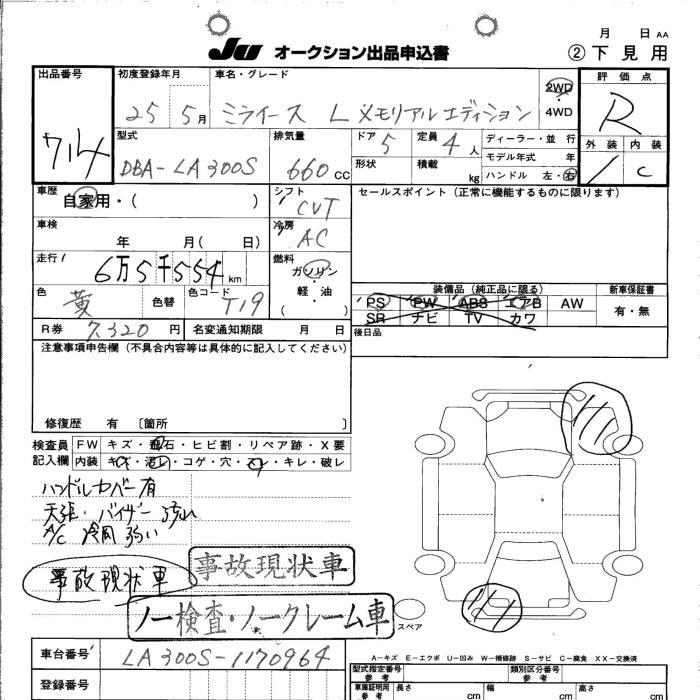 月 日 AA
JU オークション出品申込書 ②下見用
出品番号 714
初度登録年月 25 5月
車名・グレード ミライース L メモリアルエディション
2WD
4WD
評価点 R
外装 1 内装 C
型式 DBA-LA300S
排気量 660 CC
ドア 5
形状
定員 4人
積載 kg
ディーラー・並行
モデル年式 年
ハンドル 左・右
車歴 自家用・( )
シフト CVT
セールスポイント(正常に機能するものに限ります)
車検 年 月( 日)
冷房 AC
走行 6万5千554 km
燃料 ガソリン
軽・油
( )
色 黄 色替 色コード T19
装備品(純正品に限る) 新車保証書
PS PW ABS エアB AW 有・無
SR ナビ TV カワ
R券 7,320円 名変通知期限 月 日
後日品
注意事項申告欄(不具合内容等は具体的に記入してください)
修復歴 有 〔箇所 〕
検査員記入欄
FW キズ・飛石・ヒビ割・リペア跡・X要
内装 キズ・汚レ・コゲ・穴・スレ・キレ・破レ
ハンドルカバー有
天張・バイザー汚れ
A/C 冷風弱い
事故現状車
事故現状車
ノー検査・ノークレーム車
スペア
車台番号 LA300S-1170964
登録番号
A-キズ E-エクボ U-凹み W-補修跡 S-サビ C-腐食 XX-交換済
型式指定番号 参考 類別区分番号 参考
車庫証明用 参考 長さ cm 幅 cm 高さ cm